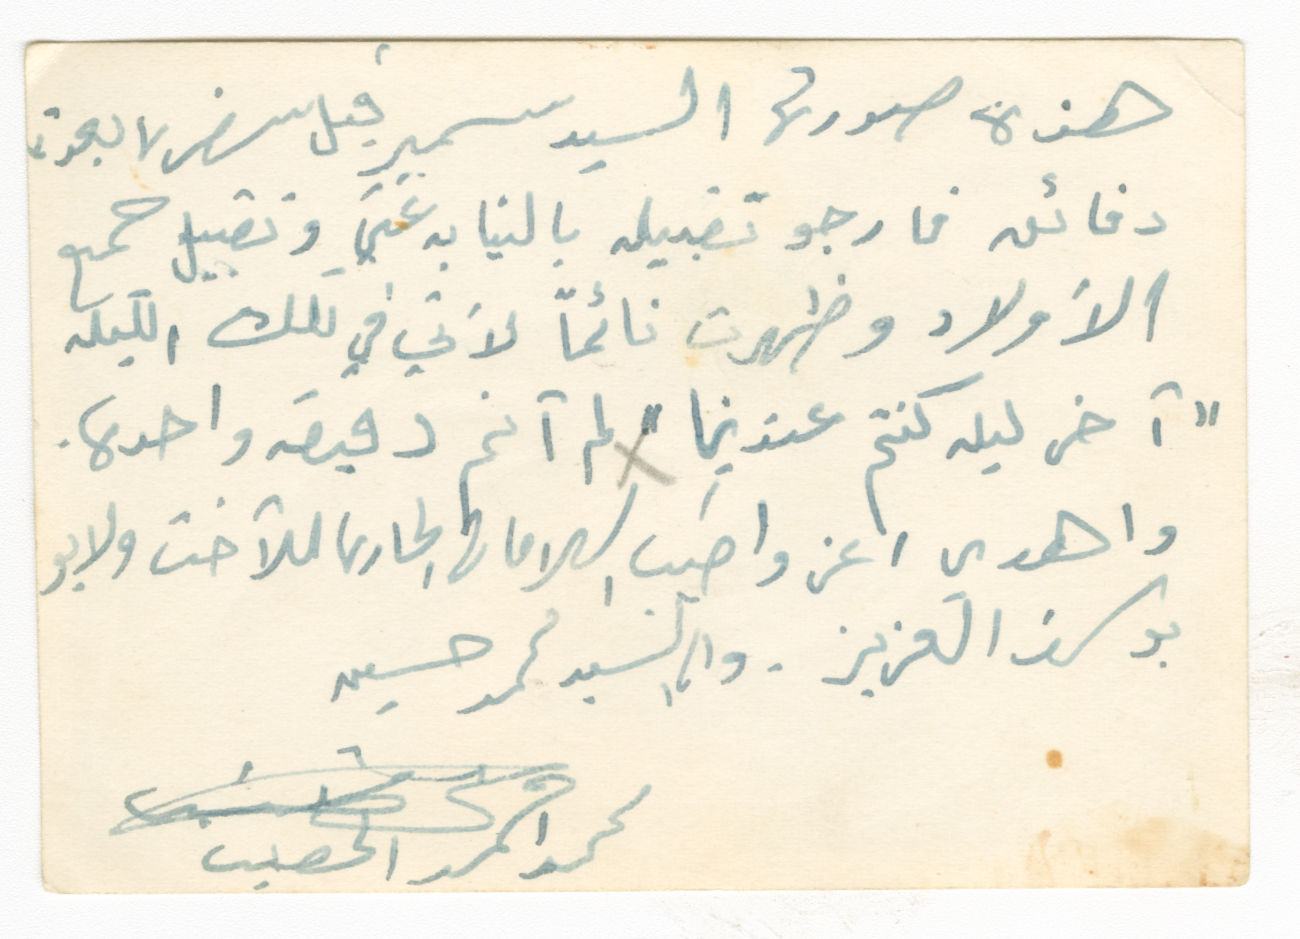 هذه صورة السيد سمير قبل سفره بعدة
دقائق فارجو تقبيله بالنيابه عني وتقبيل جميع
الأولاد وظهرت نائماً لأني في تلك الليله
"آخر ليله كنتم عندنا" لم أنم دقيقه واحدة.
واهدى اعز واطيب السلامات الحاره للأخت ولابو
يوسف العزيز. والسيد محمد حسين
محمد احمد الخطيب